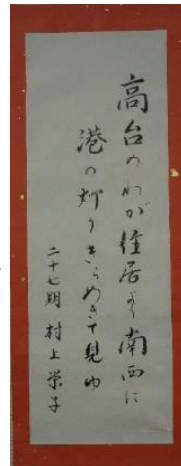 高台のわが住居より南西に
港の灯りきらめきて見ゆ
二十七期 村上栄子